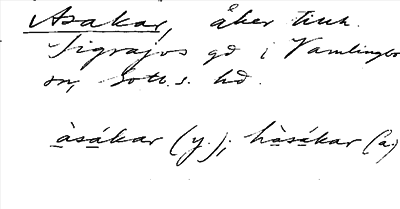 Asakar, åker tillh.
Sigrajvs gd i Vamlingbo
sn, Gotl. s. hd.
àsákar (y.); hàsákar (a.)